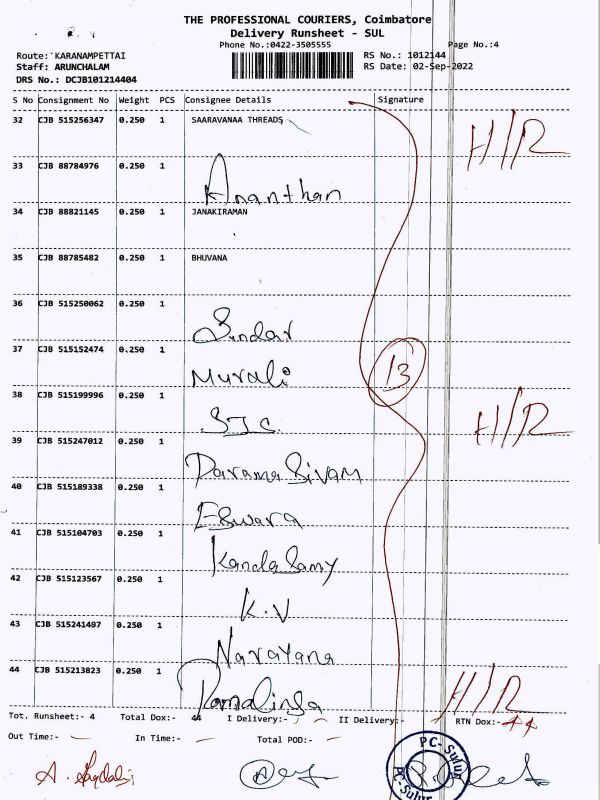 THE PROFESSIONAL COURIERS, Coimbatore
Delivery Runsheet - SUL
Phone No.:0422-3505555 Page No.:4
Route: KARANAMPETTAI RS No.: 1012144
Staff: ARUNCHALAM RS Date: 02-Sep-2022
DRS No.: DCJB101214404
S No Consignment No Weight PCS Consignee Details Signature
32 CJB 515256347 0.250 1 SAARAVANAA THREADS H/R
33 CJB 88784976 0.250 1
Ananthan
34 CJB 88821145 0.250 1 JANAKIRAMAN
35 CJB 88785482 0.250 1 BHUVANA
36 CJB 515250062 0.250 1
Sundar
37 CJB 515152474 0.250 1
Murali 13
38 CJB 515199996 0.250 1 H/R
39 CJB 515247012 0.250 1
Parama Sivam
40 CJB 515189338 0.250 1
Eswara
41 CJB 515104703 0.250 1
Kanda Samy
42 CJB 515123567 0.250 1
K.V
43 CJB 515241497 0.250 1
Narayana
44 CJB 515213823 0.250 1 H/R
Ramalinga
Tot. Runsheet:- 4 Total Dox:- 44 I Delivery:- II Delivery:- RTN Dox:-
Out Time:- In Time:- Total POD:-
PC-Sulur
PC-Sulur